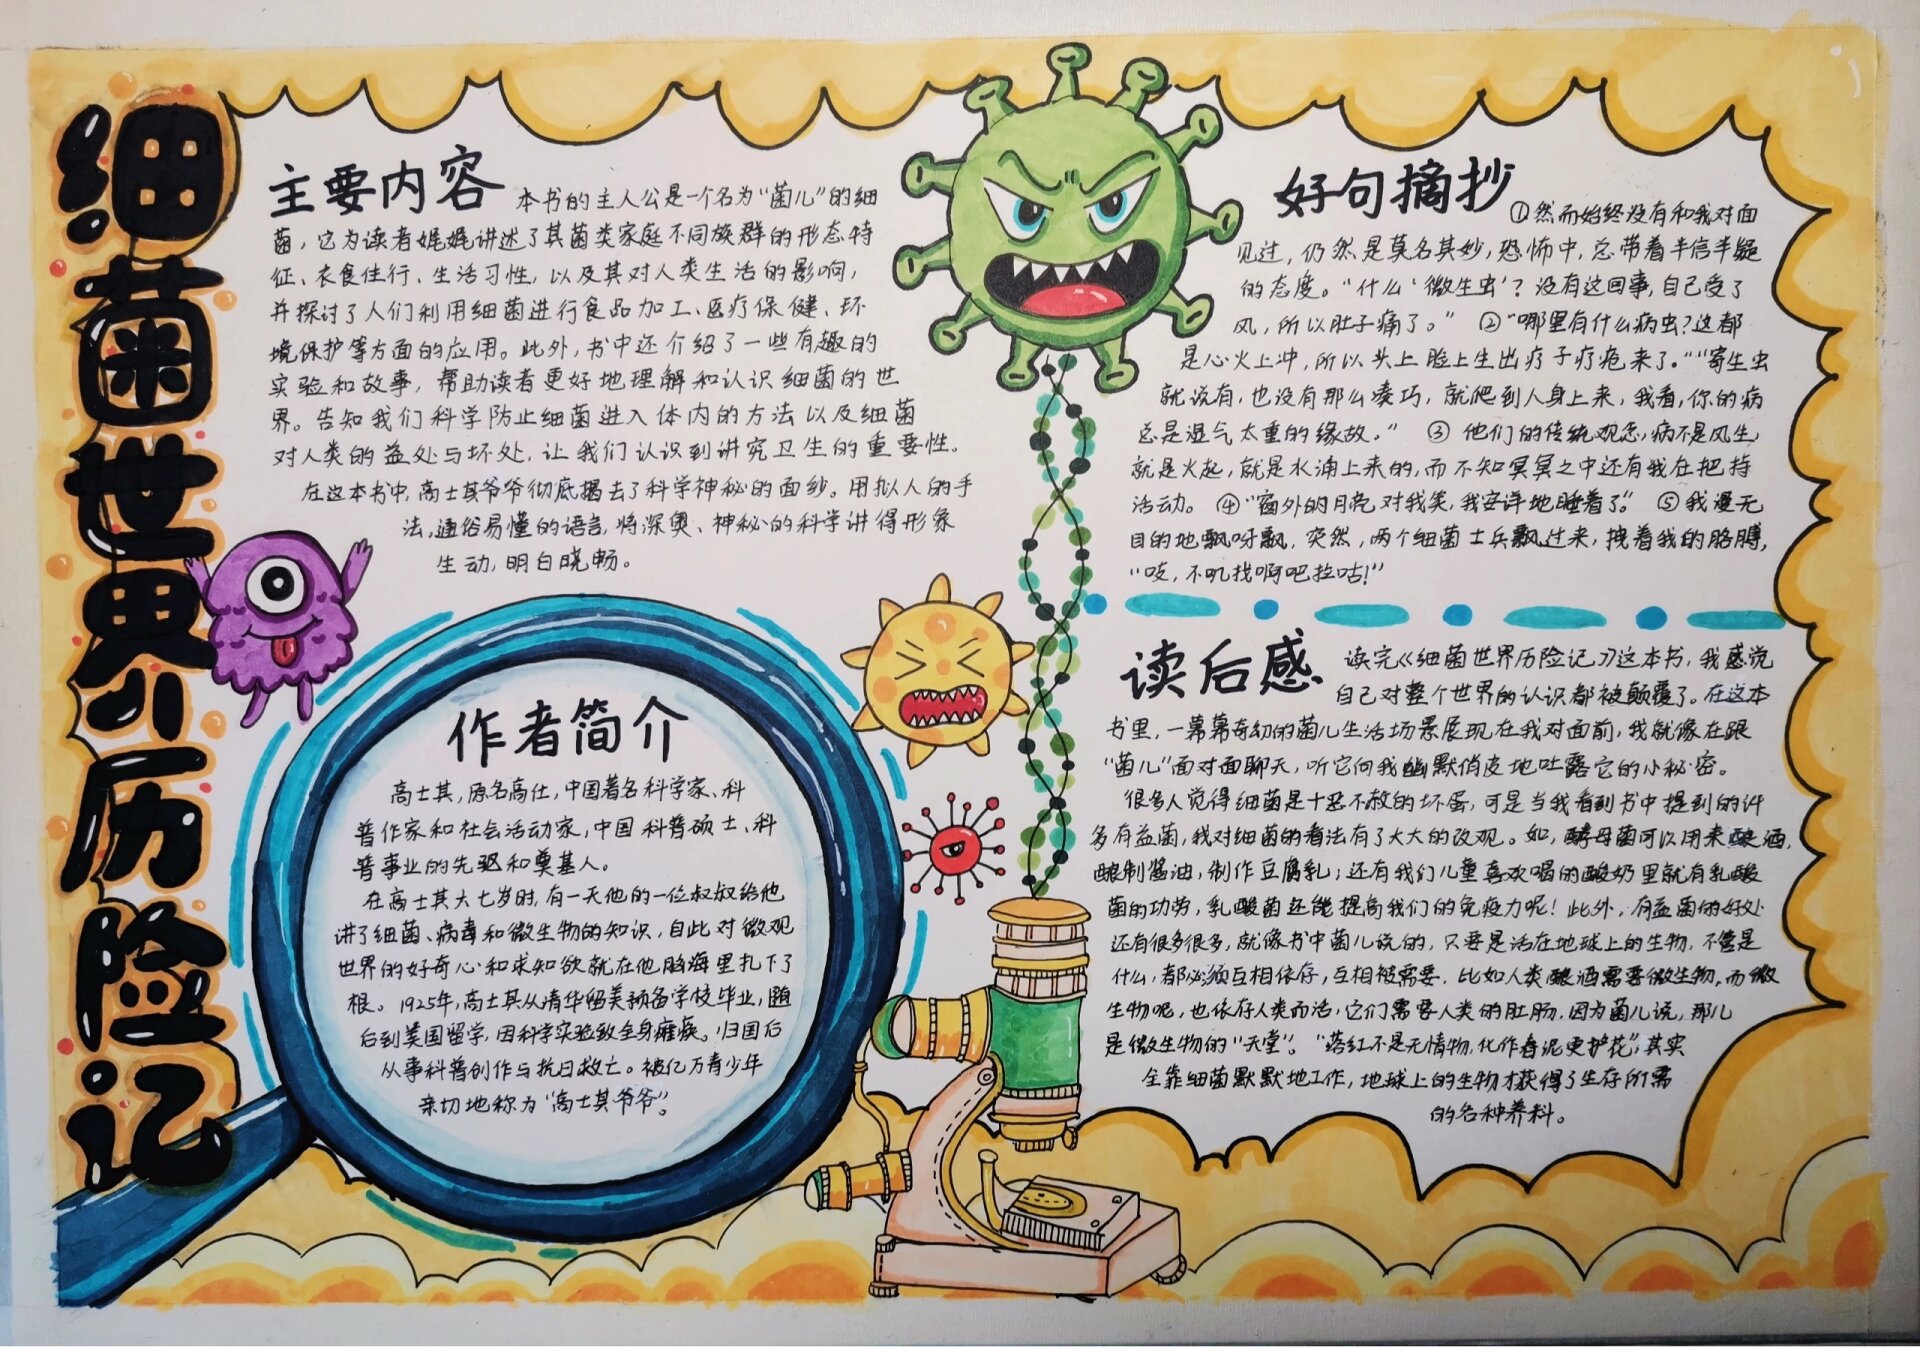 细菌世界历险记
主要内容
本书的主人公是一个名为“菌儿”的细
菌，它为读者娓娓讲述了其菌类家庭不同族群的形态特
征、衣食住行、生活习性，以及其对人类生活的影响，
并探讨了人们利用细菌进行食品加工、医疗保健、环
境保护等方面的应用。此外，书中还介绍了一些有趣的
实验和故事，帮助读者更好地理解和认识细菌的世
界。告知我们科学防止细菌进入体内的方法以及细菌
对人类的益处与坏处，让我们认识到讲究卫生的重要性。
在这本书中，高士其爷爷彻底揭去了科学神秘的面纱。用拟人的手
法，通俗易懂的语言，将深奥、神秘的科学讲得形象
生动，明白晓畅。
作者简介
高士其，原名高仕，中国著名科学家、科
普作家和社会活动家，中国科普硕士、科
普事业的先驱和奠基人。
在高士其大七岁时，有一天他的一位叔叔给他
讲了细菌、病毒和微生物的知识，自此对微观
世界的好奇心和求知欲就在他脑海里扎下了
根。1925年，高士其从清华留美预备学校毕业，随
后到美国留学，因科学实验致全身瘫痪。归国后
从事科普创作与抗日救亡。被亿万青少年
亲切地称为“高士其爷爷”。
好句摘抄
①然而始终没有和我对面
见过，仍然是莫名其妙，恐怖中，总带着半信半疑
的态度。“什么‘微生虫’？没有这回事，自己受了
风，所以肚子痛了。” ②“哪里有什么病虫？这都
是心火上冲，所以头上脸上生出疖子疔疮来了。”“寄生虫
就说有，也没有那么凑巧，就爬到人身上来，我看，你的病
总是湿气太重的缘故。” ③他们的传统观念，病不是风生，
就是火起，就是水涌上来的，而不知冥冥之中还有我在把持
活动。 ④“窗外的月亮对我笑，我安详地睡着了。” ⑤我漫无
目的地飘呀飘，突然，两个细菌士兵飘过来，拽着我的胳膊，
“吱，不叽找啊吧拉咕！”
读后感
读完《细菌世界历险记》这本书，我感觉
自己对整个世界的认识都被颠覆了。在这本
书里，一幕幕奇幻的菌儿生活场景展现在我对面前，我就像在跟
“菌儿”面对面聊天，听它向我幽默俏皮地吐露它的小秘密。
很多人觉得细菌是十恶不赦的坏蛋，可是当我看到书中提到的许
多有益菌，我对细菌的看法有了大大的改观。如，酵母菌可以用来酿酒，
酿制酱油，制作豆腐乳；还有我们儿童喜欢喝的酸奶里就有乳酸
菌的功劳，乳酸菌还能提高我们的免疫力呢！此外，有益菌的好处
还有很多很多，就像书中菌儿说的，只要是活在地球上的生物，不管是
什么，都必须互相依存，互相被需要，比如人类酿酒需要微生物，而微
生物呢，也依存人类而活，它们需要人类的肚肠，因为菌儿说，那儿
是微生物的“天堂”。“落红不是无情物，化作春泥更护花”，其实
全靠细菌默默地工作，地球上的生物才获得了生存所需
的各种养料。